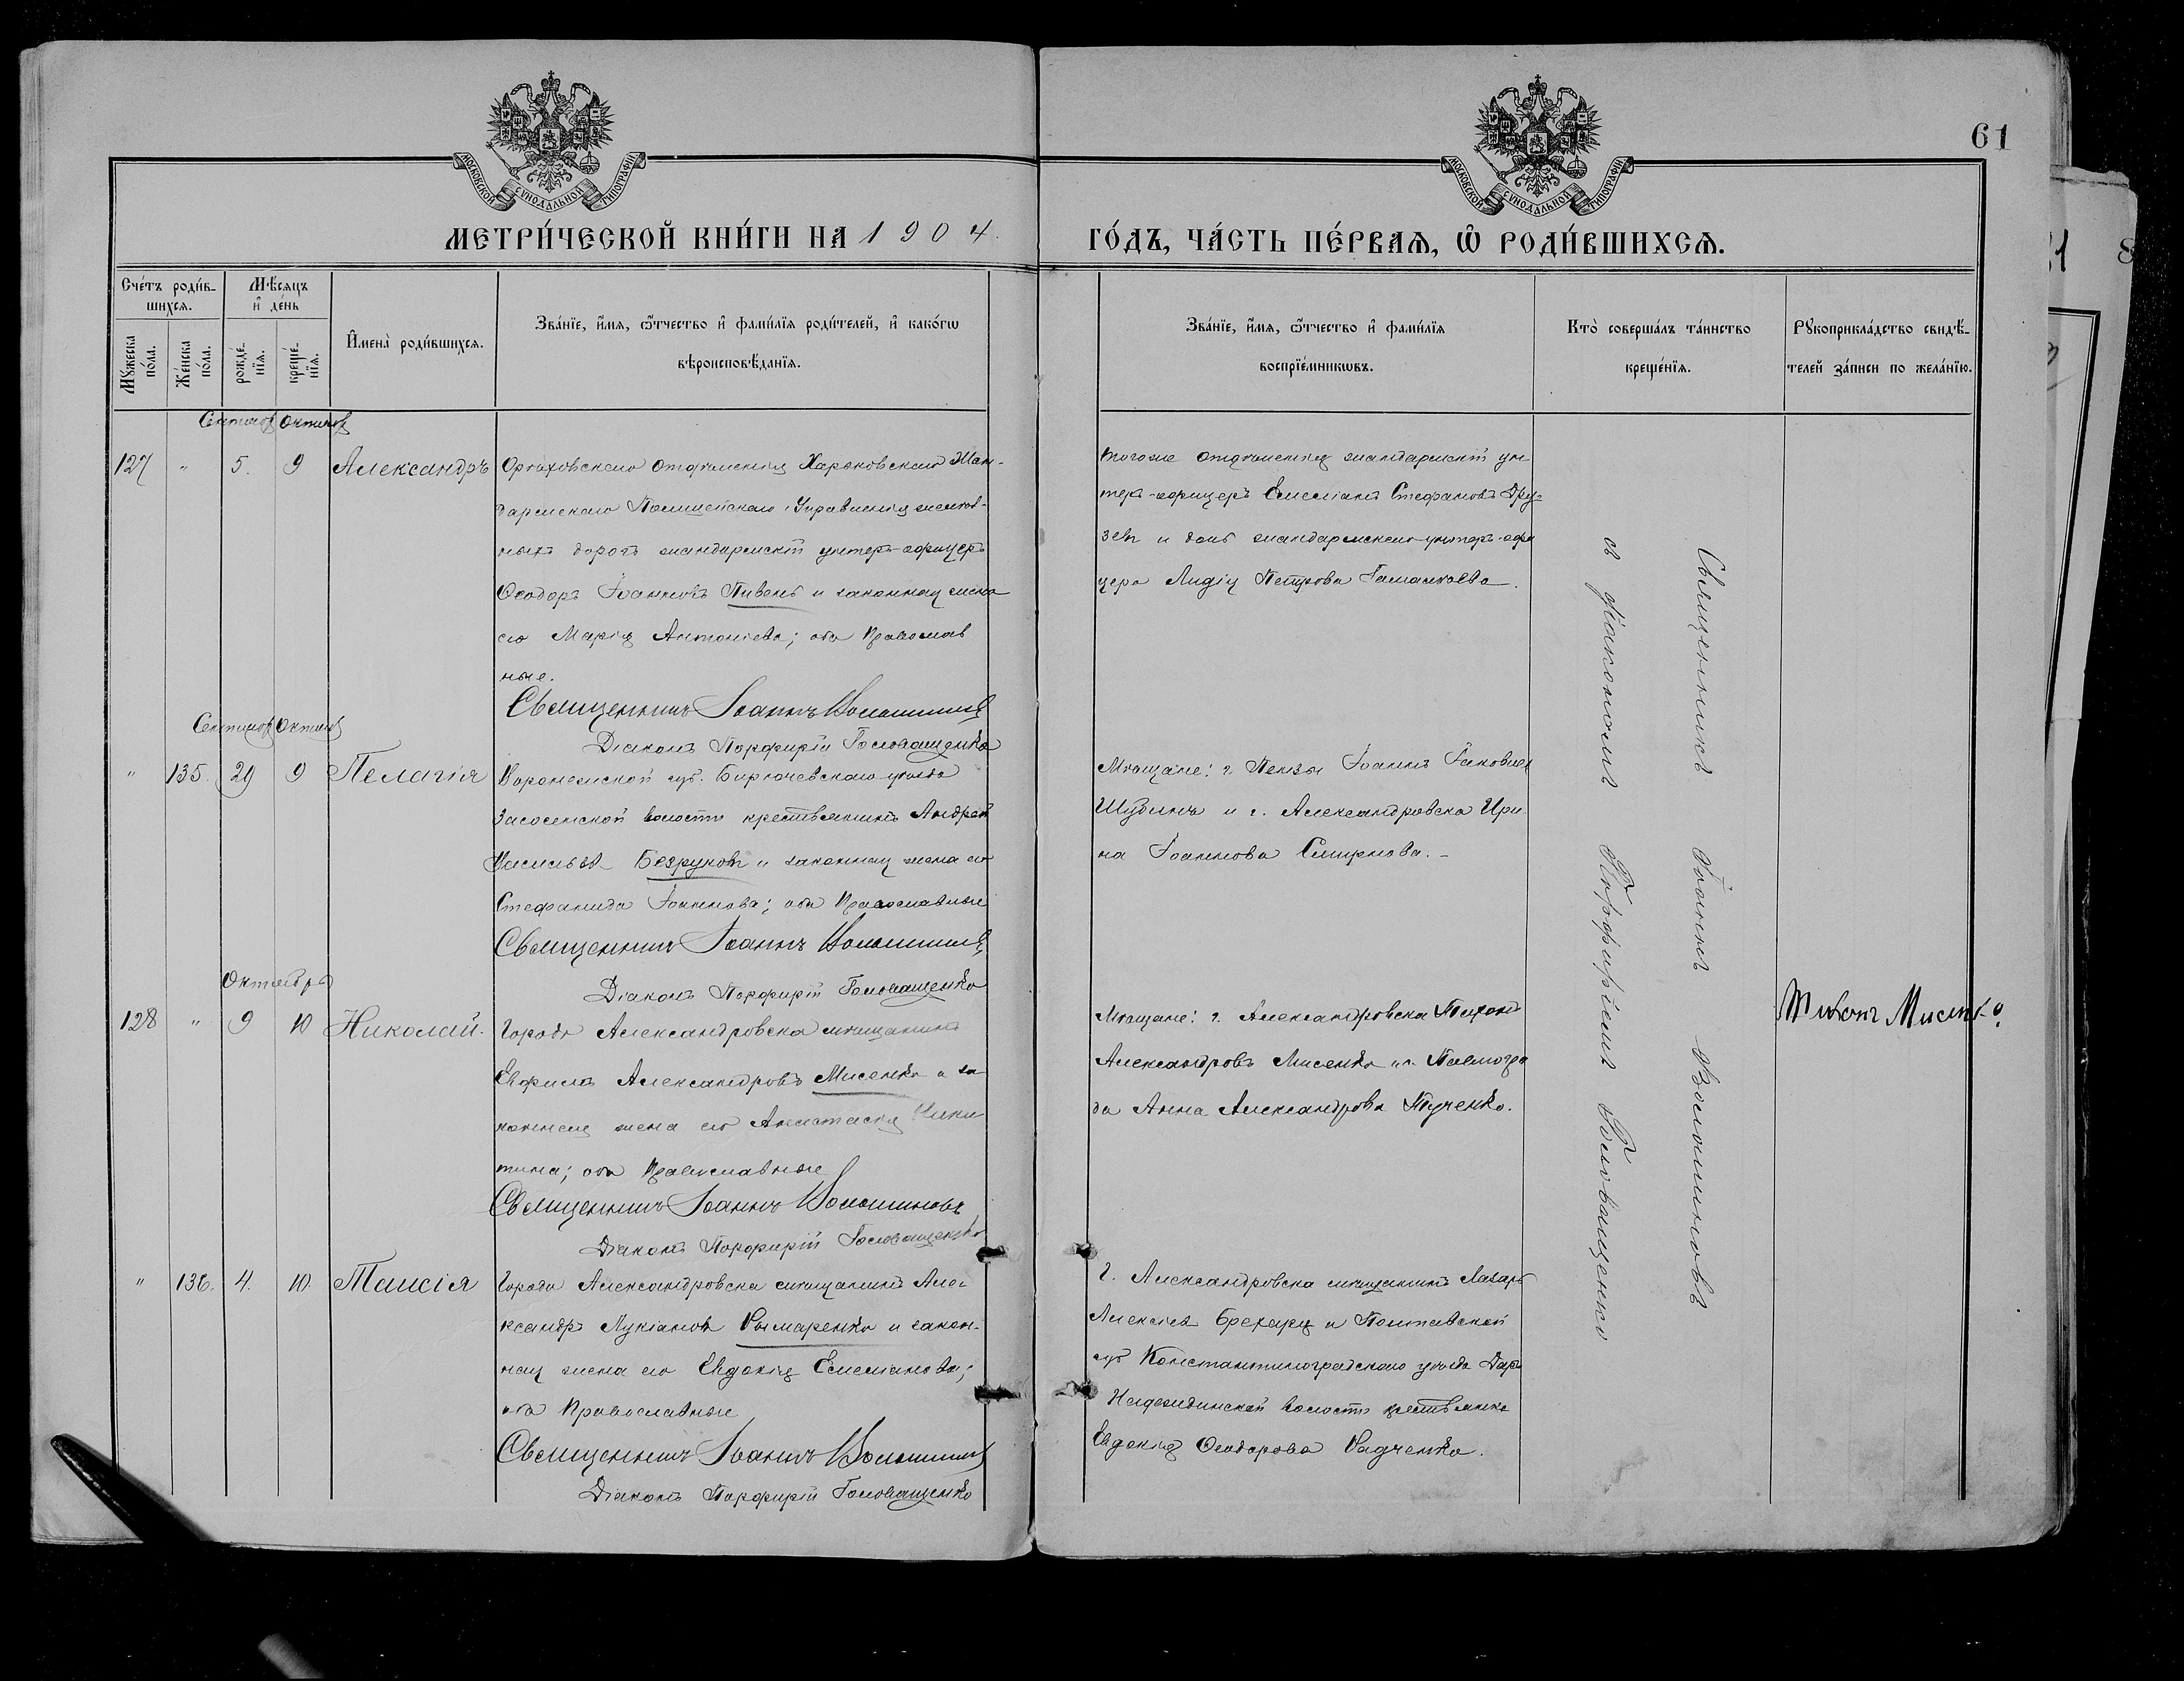 61
МОСКОВСКОЙ СѴНОДАЛЬНОЙ ТИПОГРАФІИ
МОСКОВСКОЙ СѴНОДАЛЬНОЙ ТИПОГРАФІИ
МЕТРИ́ЧЕСКОЙ КНИ́ГИ НА 1904.
ГО́ДЪ, ЧА́СТЬ ПЕ́РВАѦ, Ѽ РОДИ́ВШИХСѦ.
Сче́тъ роди́в-
шихсѧ.
Мѣ́сяцъ
и҆ де́нь
Мꙋжеска
по́ла.
Же́нска
по́ла.
рожде́-
нїѧ.
креще́-
нїѧ.
И҆мена̀ роди́вшихсѧ.
Зва́нїе, и҆́мѧ, ѻ҆́тчество и҆ фами́лїѧ роди́телей, и҆ како́гѡ
вѣроисповѣ́данїѧ.
Зва́нїе, и҆́мѧ, ѻ҆́тчество и҆ фами́лїѧ
воспрїе́мникѡвъ.
Кто̀ соверша́лъ та́инство
креще́нїѧ.
Рꙋкоприкла́дство свидѣ́-
телей за́писи по жела́нїю.
Сентябр Октябр
127 " 5. 9 Александръ
Орѣховскаго отдѣленія Харьковскаго Жан-
дармскаго Полицейскаго Управленія желѣз-
ныхъ дорогъ жандармскій унтеръ-офицеръ
Ѳеодоръ Іоанновъ Пивень и законная жена
его Марія Антоніева; оба Православ
ные.
Священникъ Іоаннъ Волошиновъ
Діаконъ Порфирій Головащенко
тогоже отдѣленія жандармскій ун
теръ-офицеръ Емеліанъ Стефановъ Дру-
зевъ и дочь жандармскаго унтеръ-офи
цера Лидія Петрова
Сентябр Октябр
" 135. 29 9 Пелагія
Воронежской губ. Бирюченскаго уѣзда
Засосенской волости крестьянинъ Андрей
Васильевъ Безруковъ и законная жена его
Стефанида Іоаннова; оба Православные
Священникъ Іоаннъ Волошиновъ
Діаконъ Порфирій Головащенко
Мѣщане: г. Пензы Іоаннъ Іаковлев
Шубинъ и г. Александровска Ири
на Іоаннова Смирнова. –
Октября
128 " 9 10 Николай.
Города Александровска мѣщанинъ
Евфимъ Александровъ Мисенко и за
конная жена его Анастасія Ники
тина; оба Православные
Священникъ Іоаннъ Волошиновъ
Діаконъ Порфирій Головащенко
Мѣщане: г. Александровска Тихонъ
Александровъ Мисенко и г. Павлогра
да Анна Александрова
Тихонъ Мисенко
" 136. 4. 10. Таисія
Города Александровска мѣщанинъ Але-
ксандръ Лукіановъ Рымаренко и закон-
ная жена его Евдокія Емеліанова;
оба Православные
Священникъ Іоаннъ Волошиновъ
Діаконъ Порфирій Головащенко
г. Александровска мѣщанинъ Лазарь
Алексіевъ и Полтавской
губ. Константиноградскаго уѣзда Дар
Надеждинской волости крестьянка
Евдокія Ѳеодорова Радченко.
Священникъ Іоаннъ Волошиновъ
съ діакономъ Порфиріемъ Головащенко